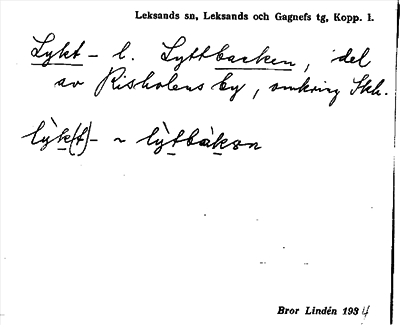 Leksands sn, Leksands och Gagnefs tg, Kopp. l.
Lykt- l. Lyttbacken, del
av Risholens by, omkring Skh.
lỳk(t)- ~ lỳtbàkən
Bror Lindén 1934